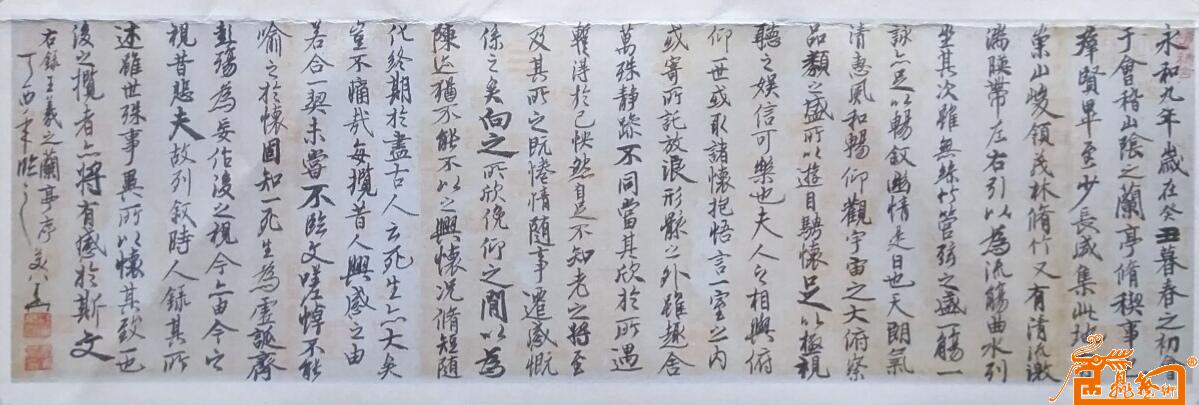 永和九年歲在癸丑暮春之初會
于會稽山陰之蘭亭脩稧事也
群賢畢至少長咸集此地
崇山峻領茂林脩竹又有清流激
湍暎帶左右引以為流觴曲水列
坐其次雖無絲竹管弦之盛一觴一
詠亦足以暢叙幽情是日也天朗氣
清惠風和暢仰觀宇宙之大俯察
品類之盛所以遊目騁懷足以極視
聽之娛信可樂也夫人之相與俯
仰一世或取諸懷抱悟言一室之內
或寄所託放浪形骸之外雖趣舍
萬殊静躁不同當其欣於所遇
暫得於己怏然自足不知老之將至
及其所之既惓情隨事遷感慨
係之矣向之所欣俛仰之間以為
陳迹猶不能不以之興懷況脩短隨
化終期於盡古人云死生亦大矣
豈不痛哉每攬昔人興感之由
若合一契未嘗不臨文嗟悼不能
喻之於懷固知一死生為虛誕齊
彭殤為妄作後之視今亦由今之
視昔悲夫故列叙時人錄其所
述雖世殊事異所以懷其致一也
後之攬者亦將有感於斯文
右錄王羲之蘭亭序
丁酉年臨之